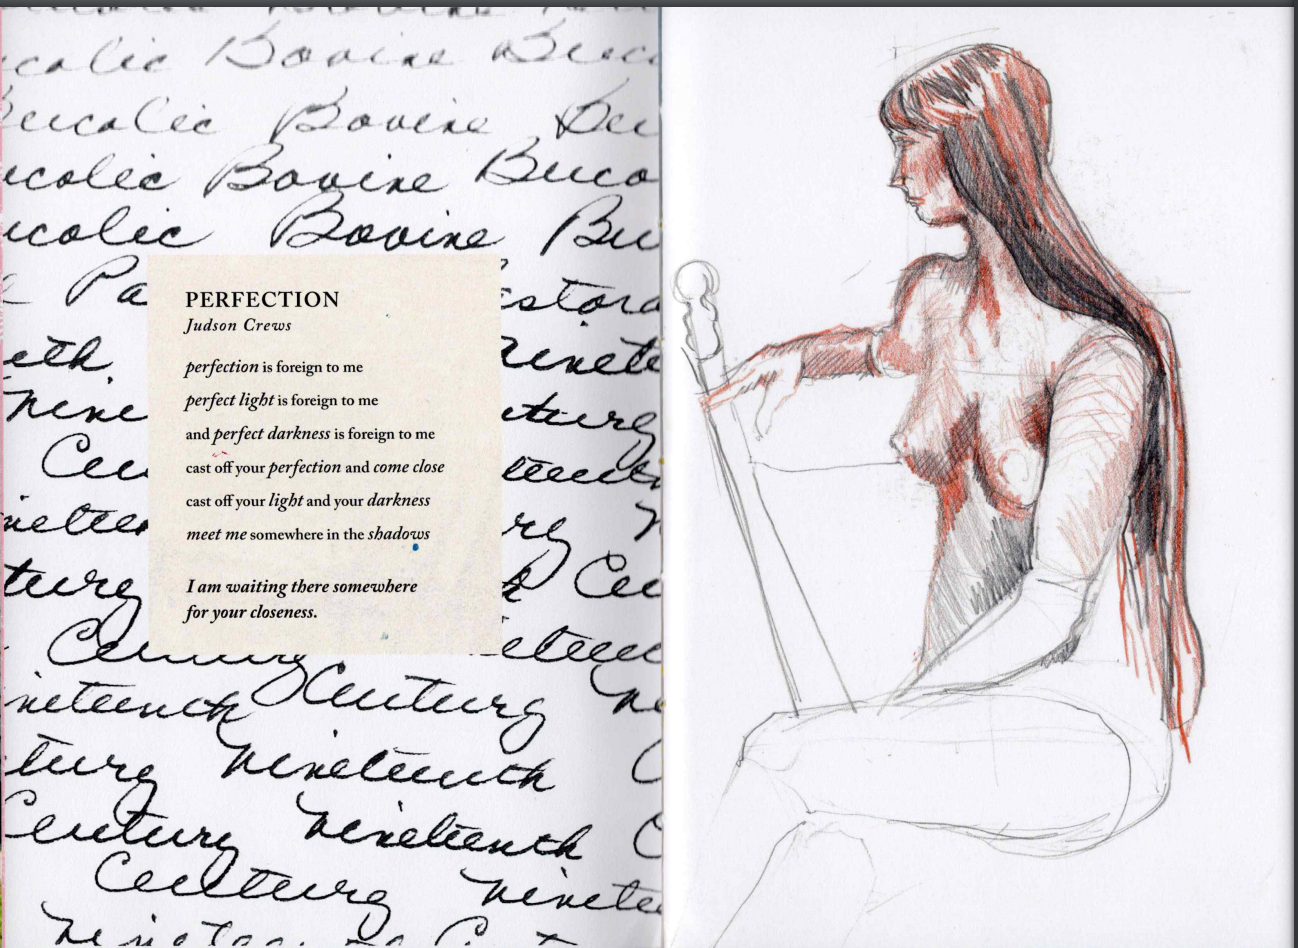 colic Bovine Buco
Bucolic Bovine Buc
ucolic Bovine Buco
ucolic Bovine Bu
Pa
PERFECTION
Judson Crews
perfection is foreign to me
perfect light is foreign to me
and perfect darkness is foreign to me
cast off your perfection and come close
cast off your light and your darkness
meet me somewhere in the shadows
I am waiting there somewhere
for your closeness.
stora
eth. ninete
nine ntury
Cen teenth
netee ry n
tury h Cen
Century neteen
nineteenth Century ni
tury nineteenth C
Century nineteenth C
Century ninete